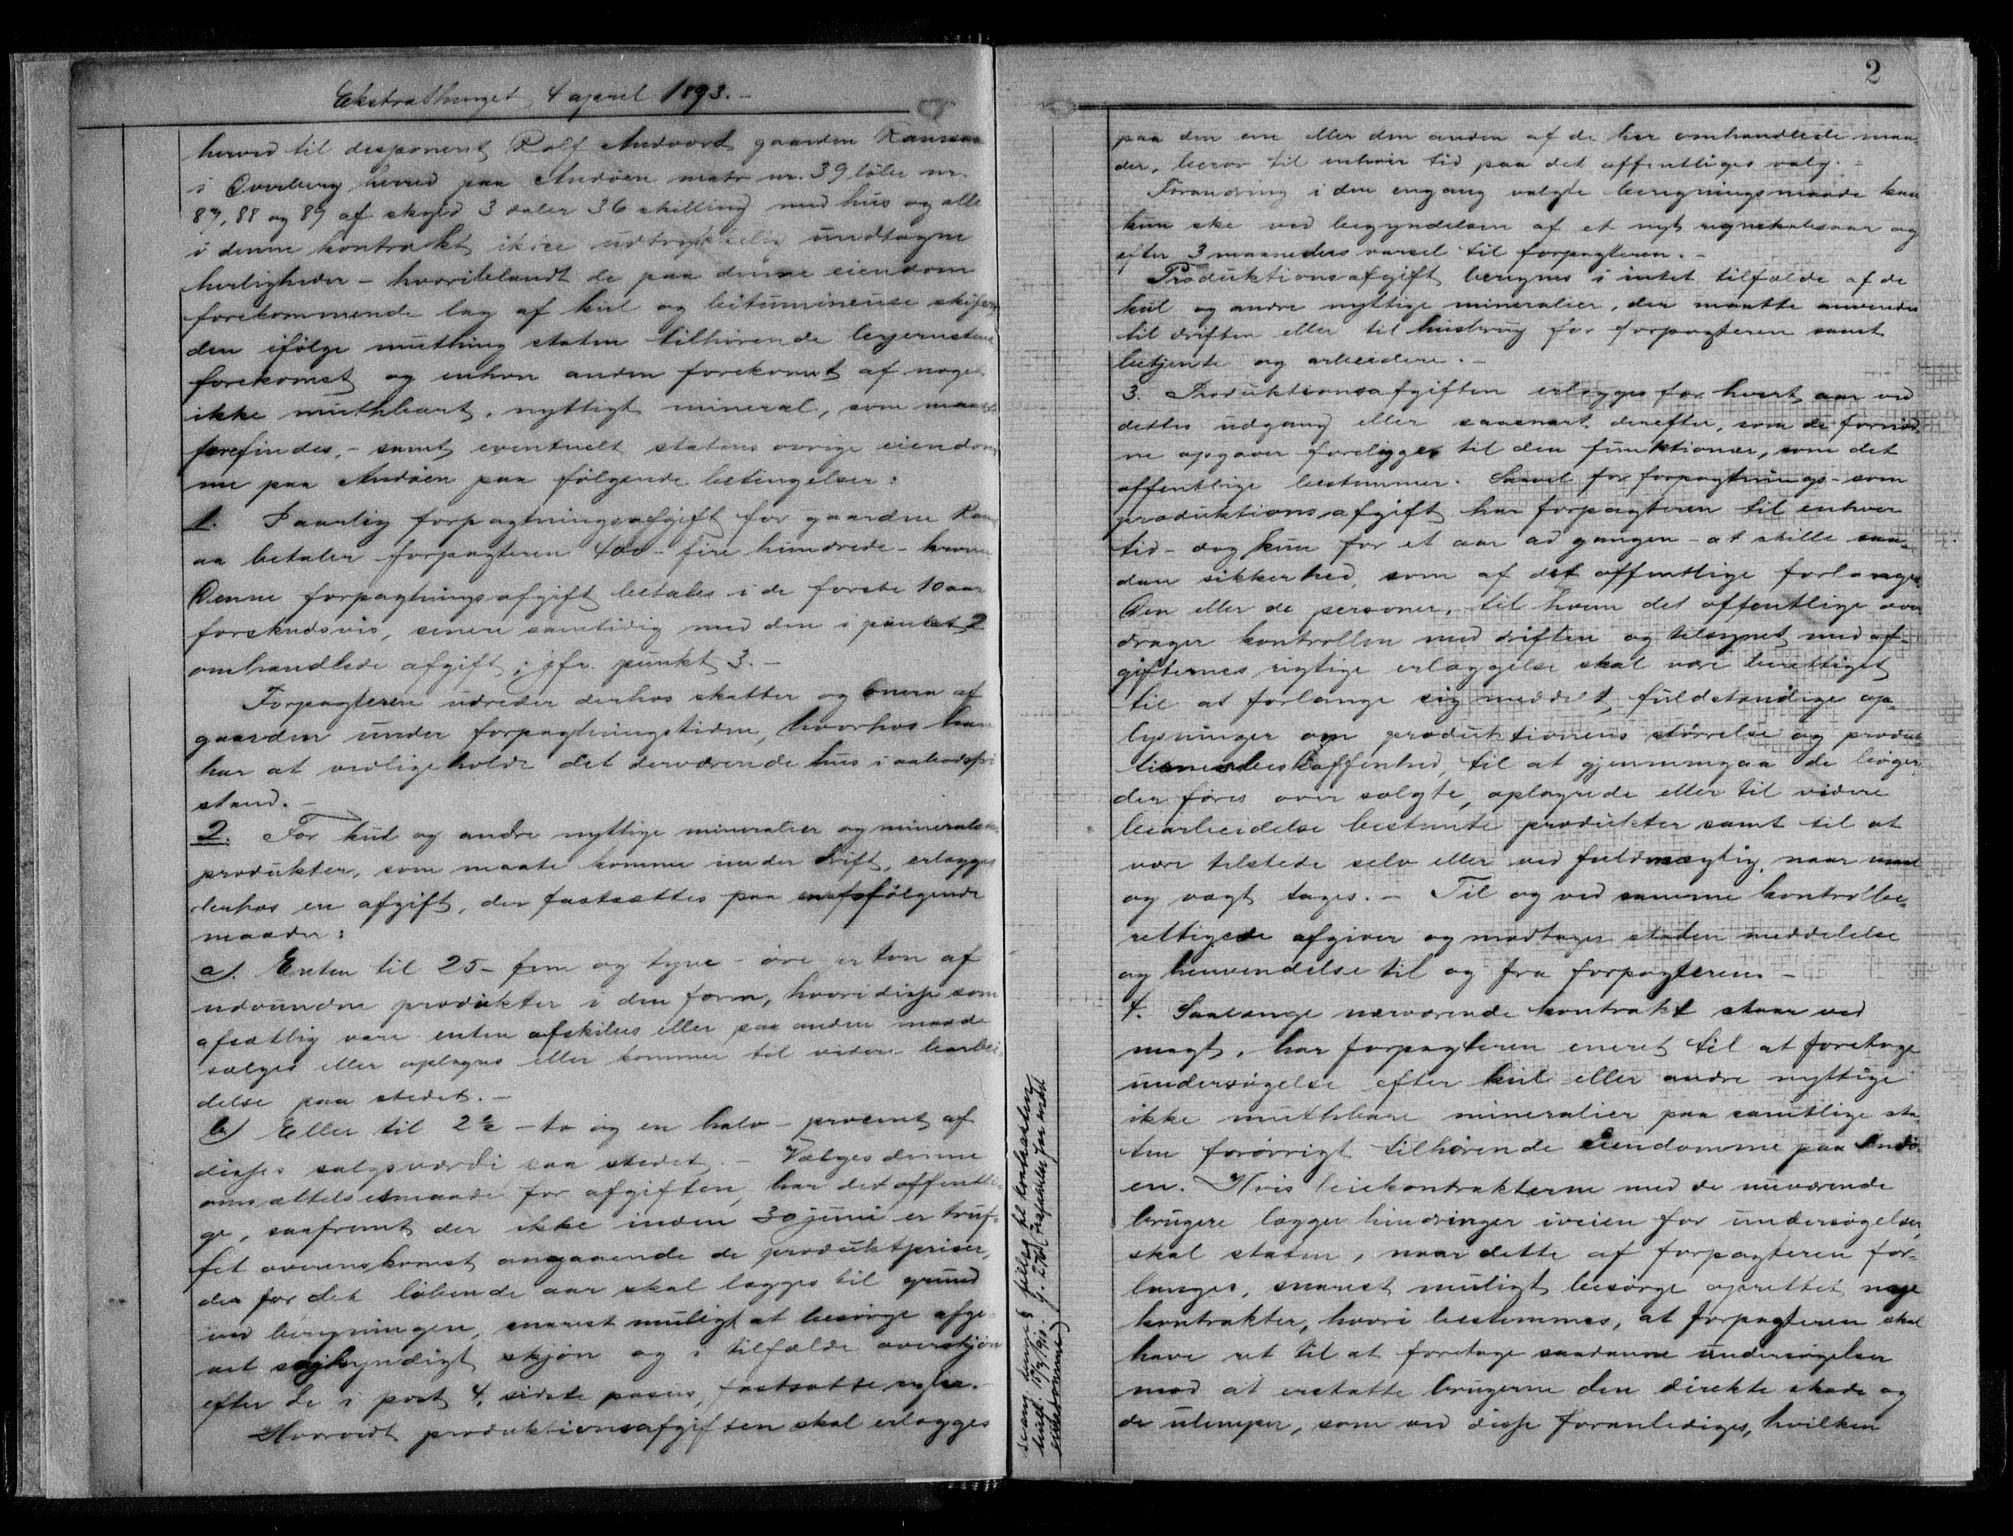 Ekstrathinget 4 april 1893.-
herved til disponent Rolf Andvord gaarden Ramsaa
i Overberg herred paa Andöen matr nr. 39 löbe nr.
87, 88 og 89 af skyld 3 daler 36 skilling med hus og alle
i denne kontrakt ikke udtrykkelig undtagne
herligheder - hvoriblandt de paa denne eiendom
forekommende lag af kul og bituminøse skifere
den ifölge muthing staten tilhörende lerjernstens
forekomst og enhver anden forekomst af noget
ikke muthbart, nyttigt mineral, som maatte
forefindes, - samt eventuelt statens övrige eiendom
me paa Andöen paa fölgende betingelser:
1. I aarlig forpagtningsafgift for gaarden Ram
aa betaler forpagteren 400 - fire hundrede - kroner
Denne forpagtningsafgift betales i de förste 10 aar
forskudsvis, senere samtidig med den i punkt 2
omhandlede afgift; jfr. punkt 3. -
Forpagteren udreder derhos skatter og onera af
gaarden under forpagtningstiden, hvorhos han
har at vedligeholde det derværende hus i aabodsfri
stand. -
2. For kul og andre nyttige mineralier og mineralske
produkter, som maate komme under drift, erlægges
derhos en afgift, der fastsættes paa en af fölgende
maader:
a). Enten til 25 - fem og tyve - öre pr ton af
udvundne produkter i den form, hvori disse som
afsætlig vare enten afskibes eller paa anden maade
sælges eller oplagres eller kommer til videre bearbei
delse paa stedet. -
b) Eller til 2½ - to og en halv - procent af
disses salgsværdi paa stedet. - Vælges denne
ansættelsesmaade for afgiften, har det offentli
ge, saafremt der ikke inden 30 juni er truf-
fet overenskomst angaaende de produktpriser,
der for det löbende aar skal lægges til grund
ved beregningen, snarest muligt at besörge afgi-
vet sagkyndigt skjön og i tilfælde overskjön
efter de i post 4, sidste passus, fastsatte regler. -
Hvorvidt produktionsafgiften skal erlægges
2
paa den ene eller den anden af de her omhandlede maa-
der, beror til enhver tid paa det offentliges valg. -
Forandring i den engang valgte beregningsmaade kan
kun ske ved begyndelsen af et nyt regnskabsaar og
efter 3 maaneders varsel til forpagteren. -
Produktionsafgift beregnes i intet tilfælde af de
kul og andre nyttige mineralier, der maatte anvendes
til driften eller til husbrug for forpagteren samt
betjente og arbeidere. -
3. Produktionsafgiften erlægges for hvert aar ved
dettes udgang eller saasnart derefter, som de fornöd-
ne opgaver foreligger til den funktionær, som det
offentlige bestemmer. Saavel for forpagtnings- som
produktionsafgift har forpagteren til enhver
tid - dog kun for et aar ad gangen - at stille saa-
dan sikkerhed, som af det offentlige forlanges
Den eller de personer, til hvem det offentlige over
drager kontrollen med driften og tilsynet med af-
gifternes rigtige erlæggelse skal være berettiget
til at forlange sig meddelt, fuldstændige op-
lysninger om produktionens störrelse og produk-
tionens beskaffenhed, til at gjennemgaa de böger,
der föres over solgte, oplagrede eller til videre
bearbeidelse bestemte produkter samt til at
være tilstede selv eller ved fuldmægtig, naar maal
og vægt tages. - Til og ved samme kontrolbe-
rettigede afgiver og modtager staten meddelelse
og henvendelse til og fra forpagteren. -
4. Saalænge nærværende kontrakt staar ved
magt, har forpagteren eneret til at foretage
undersögelse efter kul eller andre nyttige
ikke muthbare mineralier paa samtlige sta
ten forövrigt tilhörende eiendomme paa Andö-
en. Hvis leiekontrakterne med de nuværende
brugere lægger hindringer iveien for undersögelser,
skal staten, naar dette af forpagteren for-
langes, snarest muligt besörge oprettet nye
kontrakter, hvori bestemmes, at forpagteren skal
have ret til at foretage saadanne undersögelser
mod at erstatte brugerne den direkte skade og
de ulemper, som ved disse foranlediges, hvilken